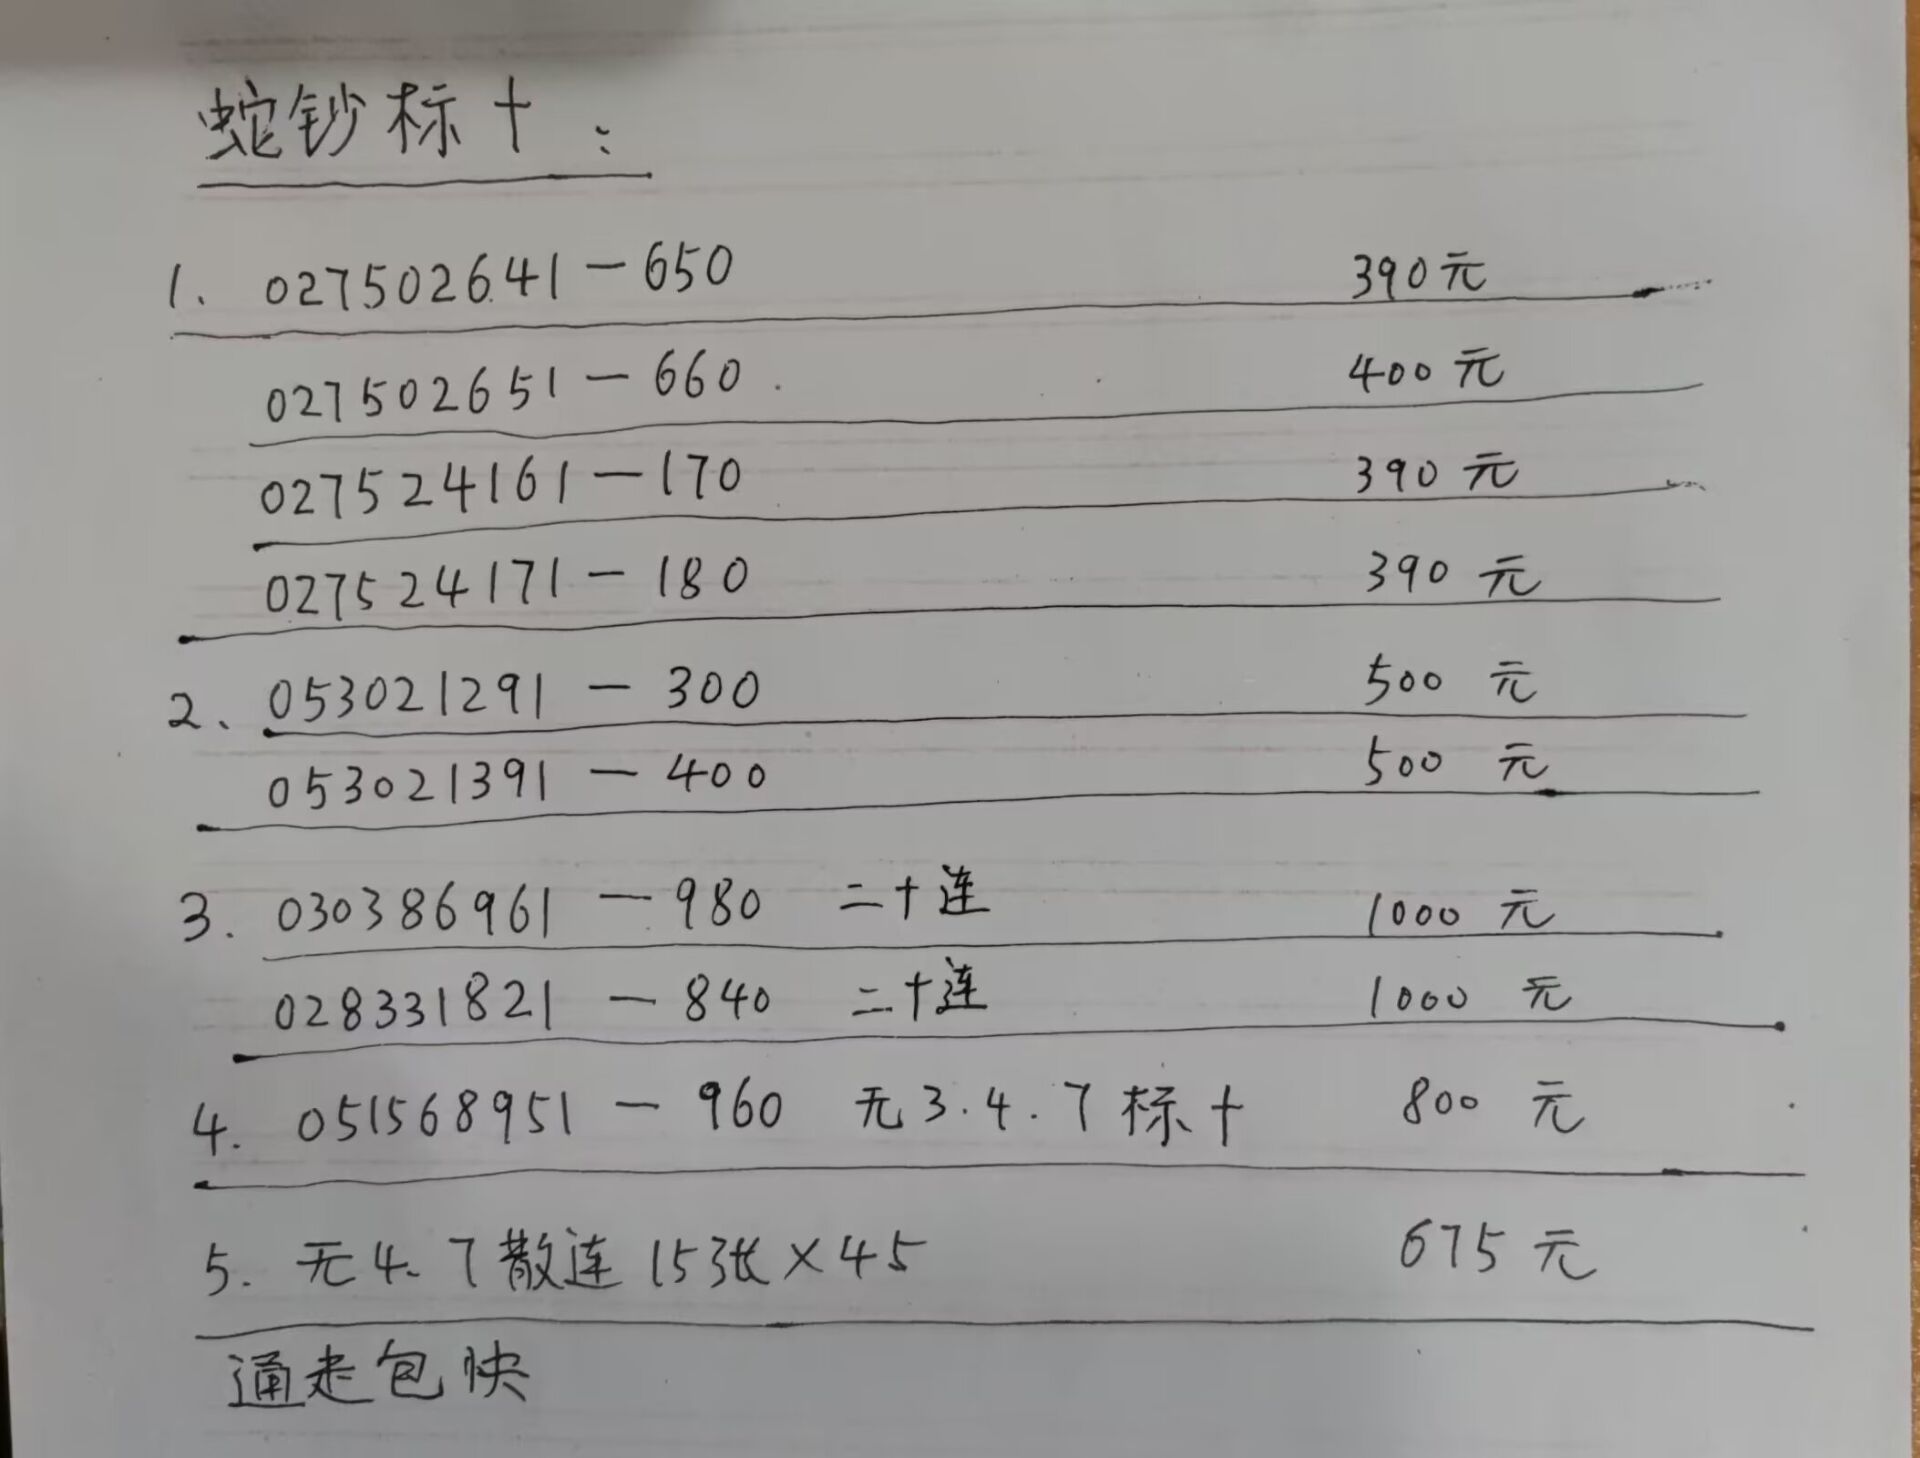 蛇钞标十：
1. 027502641-650 390元
027502651-660 400元
027524161-170 390元
027524171-180 390元
2、053021291-300 500元
053021391-400 500元
3. 030386961-980 二十连 1000元
028331821-840 二十连 1000元
4. 051568951-960 无3.4.7标十 800元
5. 无4.7散连15张×45 675元
通走包快